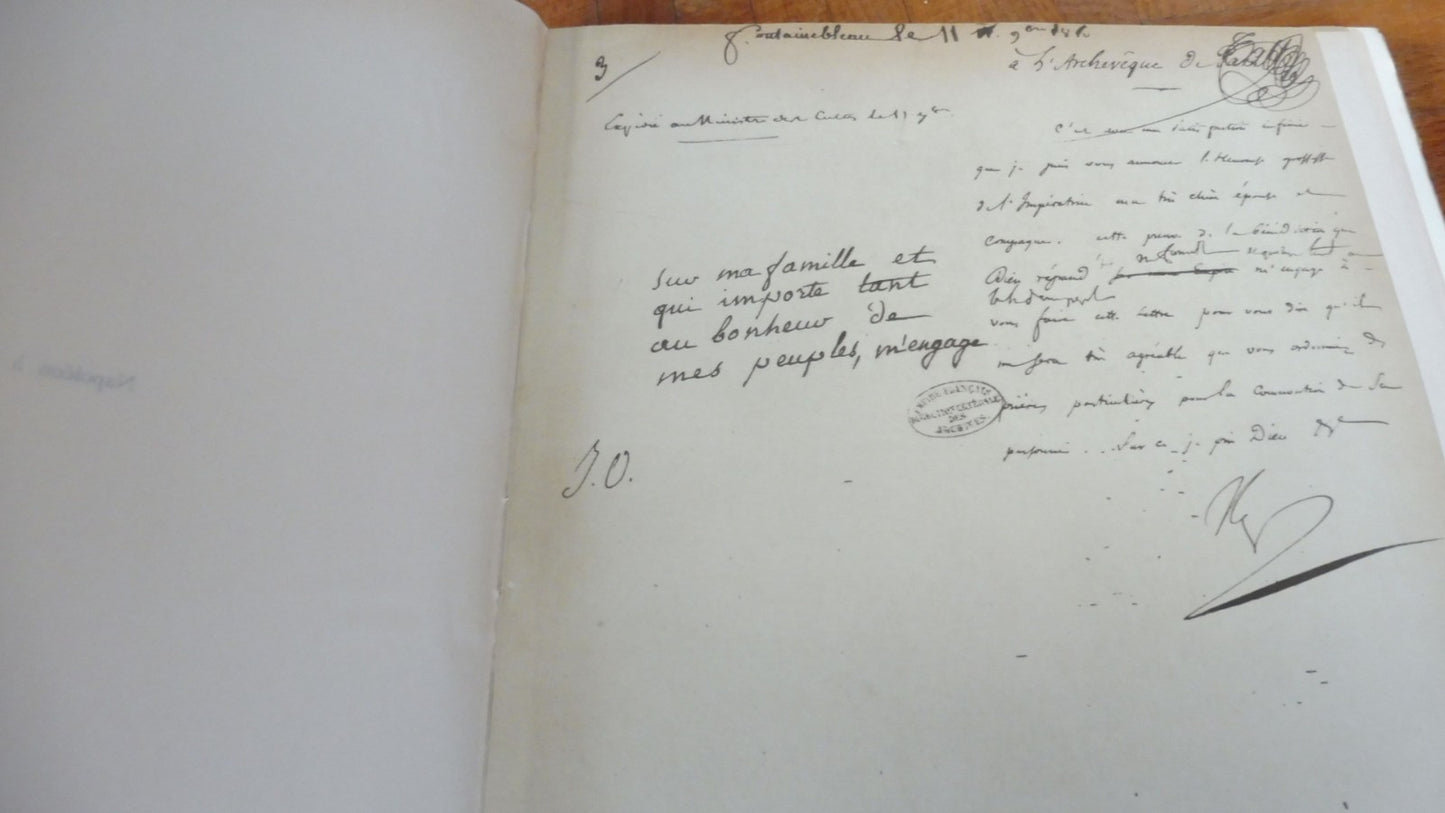 Fontainebleau le 11 9bre
3
à l'Archevêque de
Expédié au Ministre des Cultes le 9bre
C'est avec une satisfaction infinie
que je puis vous annoncer l'heureuse grossesse
de l'Impératrice ma très chère épouse et
compagne. cette preuve de la bénédiction que
Dieu répand m'engage à
vous faire cette Lettre pour vous dire qu'il
me sera très agréable que vous ordonniez des
prières particulières pour la conservation de sa
personne. Sur ce je prie Dieu
sur ma famille et
qui importe tant
au bonheur de
mes peuples, m'engage
DES
ARCHIVES
J.O.
Napoléon à